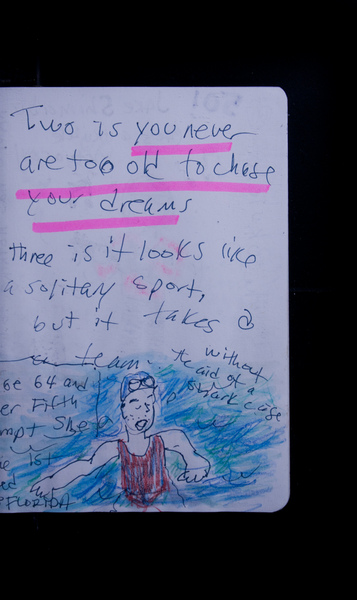 Two is you never
are too old to chase
your dreams
three is it looks like
a solitary sport,
but it takes a
team.
the without
aid of a
shark cage
64 and
Fifth
She
is
FLORIDA